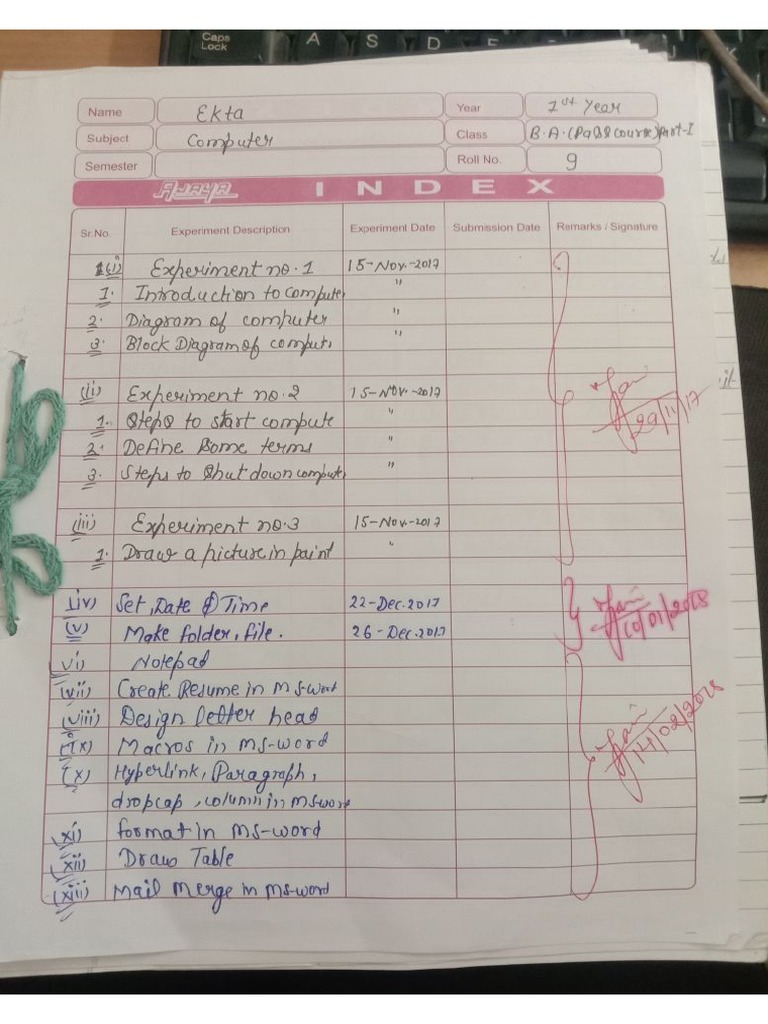 Caps Lock A S D
Name Ekta Year 1st Year
Subject Computer Class B.A. (Pass Course) Part-I
Semester Roll No. 9
AJAYA INDEX
Sr.No. Experiment Description Experiment Date Submission Date Remarks / Signature
(i) Experiment no. 1 15-Nov.-2017
1. Introduction to computer "
2. Diagram of computer "
3. Block Diagram of comput. "
(ii) Experiment no. 2 15-Nov.-2017
1. Steps to start compute "
2. Define some terms "
3. Steps to Shut down compute "
29/11/17
(iii) Experiment no. 3 15-Nov.-2017
1. Draw a picture in paint "
(iv) Set, Date & Time 22-Dec.2017
10/01/2018
(v) Make folder, file. 26-Dec.2017
(vi) Notepad
(vii) Create Resume in MS-word
(viii) Design letter head
(ix) Macros in MS-word
14/02/2018
(x) Hyperlink, Paragraph,
dropcap, column in msword
(xi) format in MS-word
(xii) Draw Table
(xiii) Mail Merge in MS-word